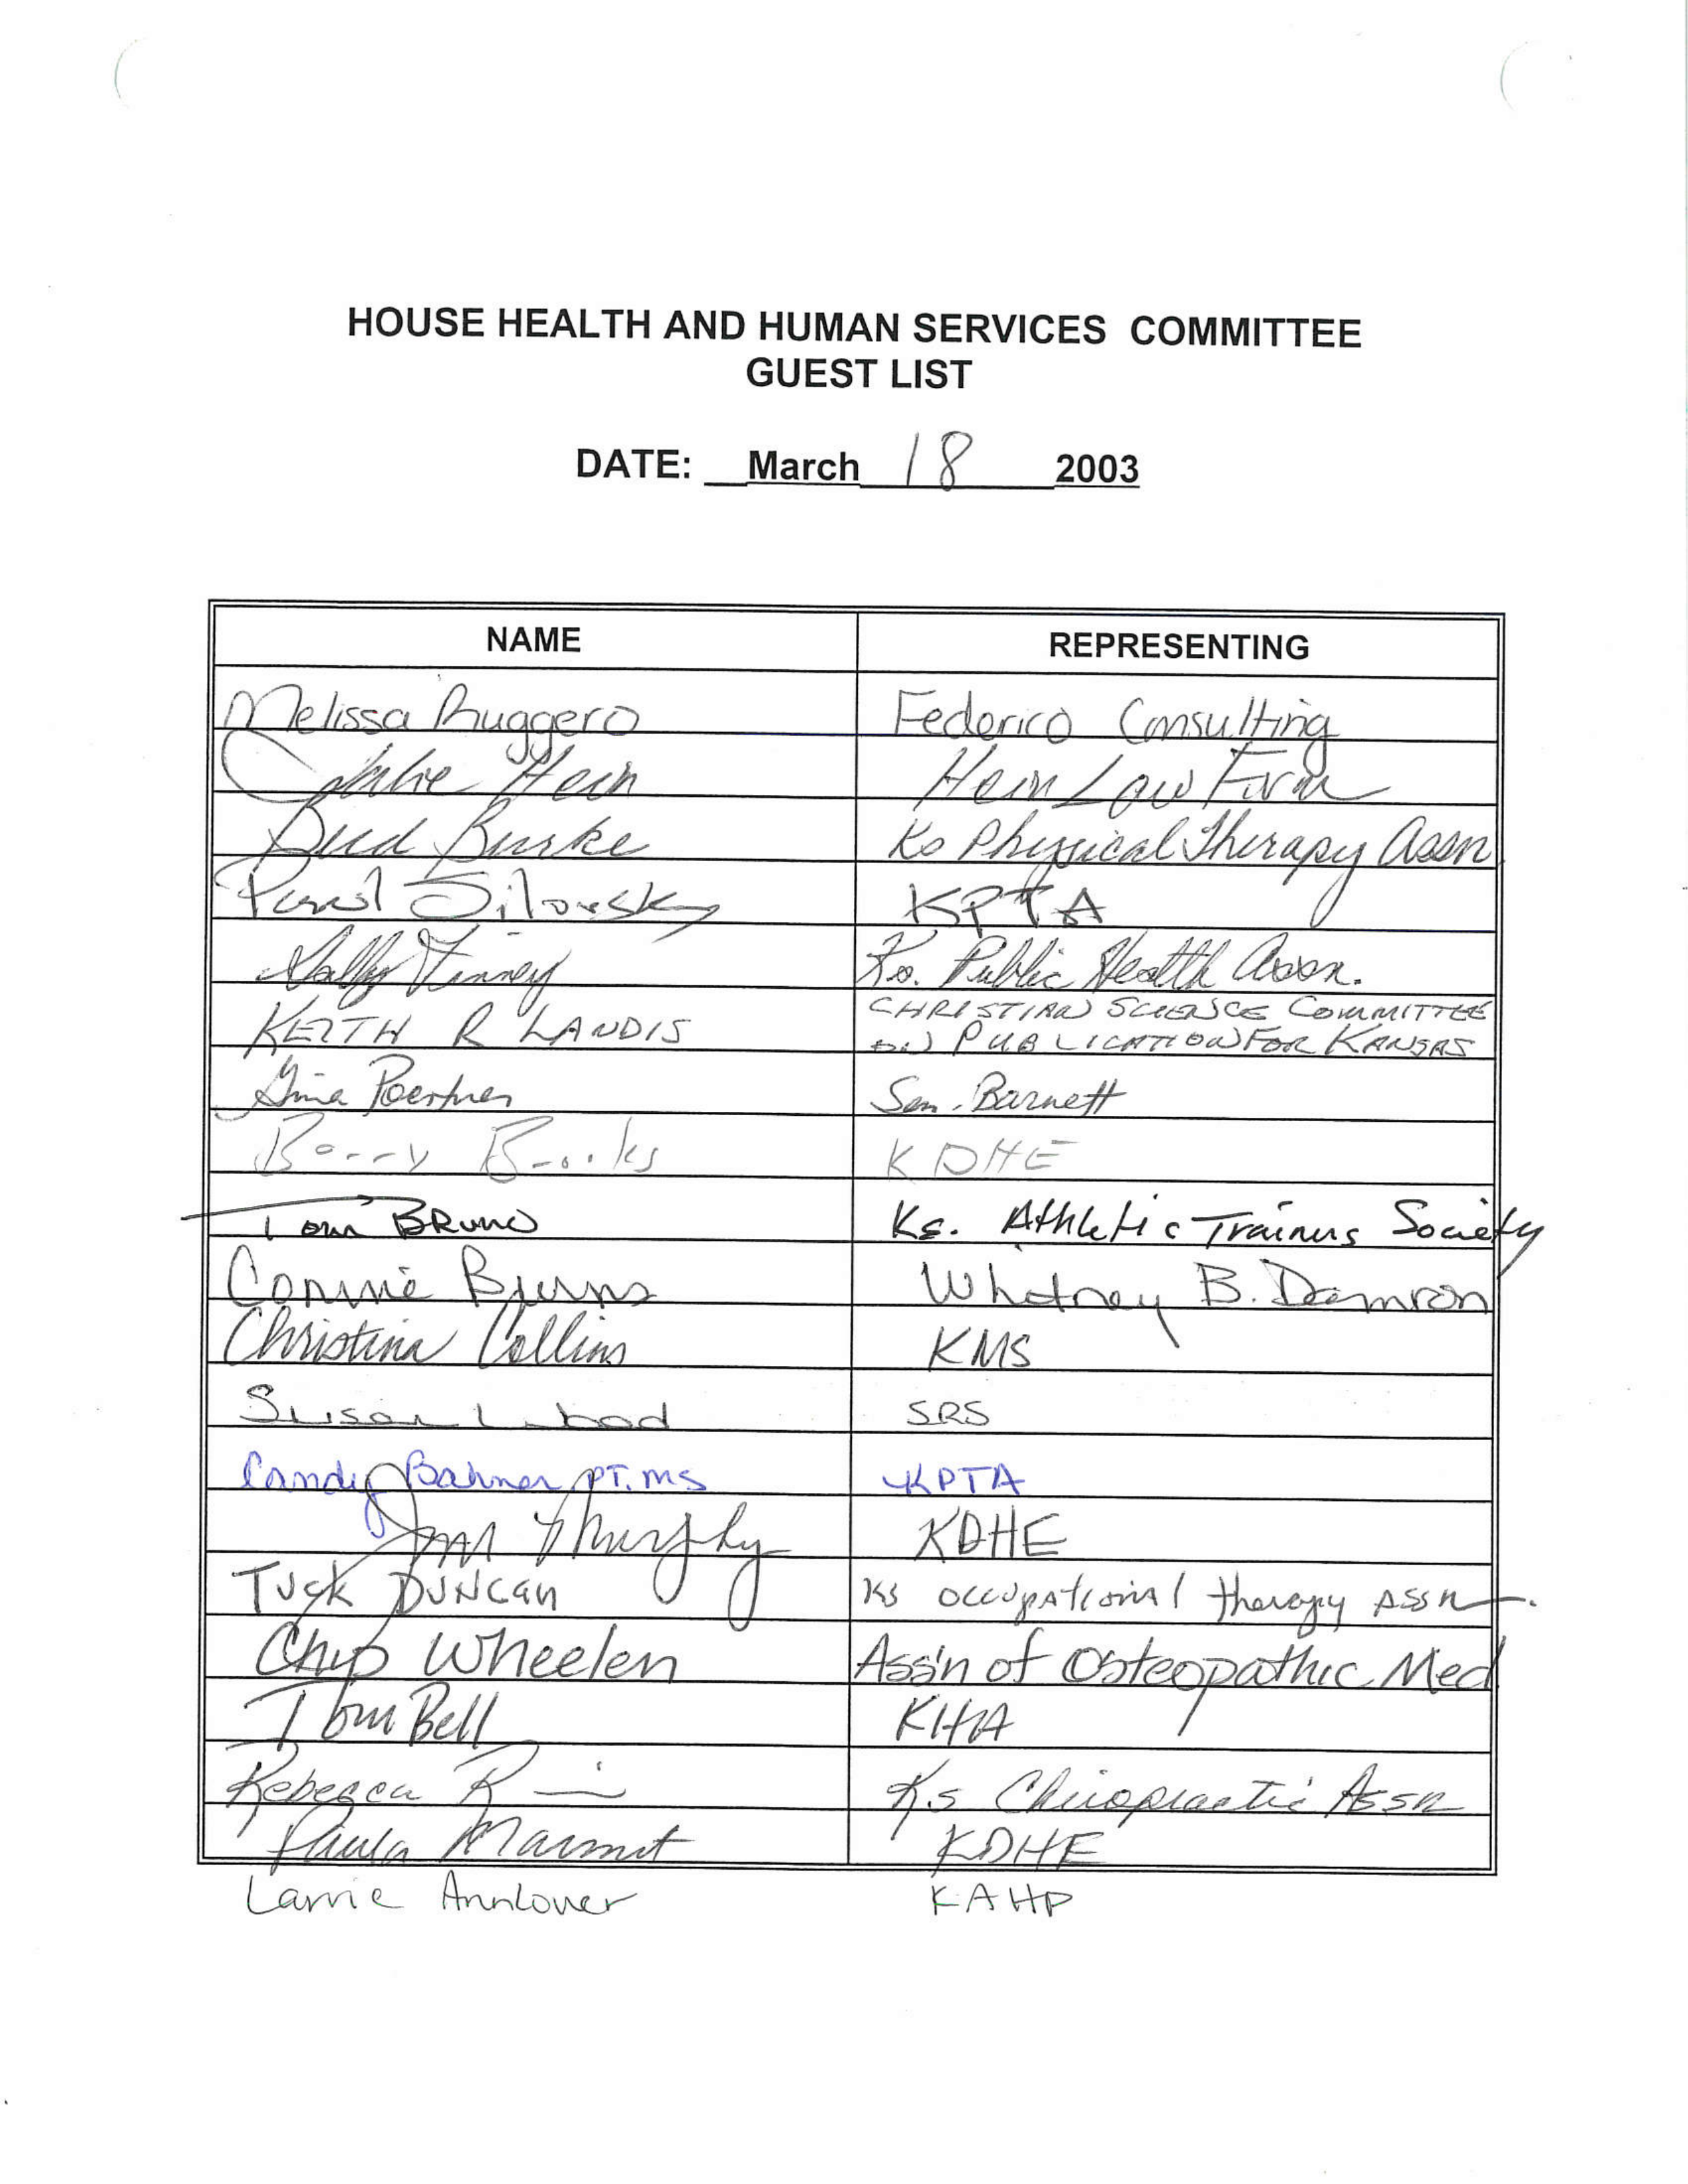 HOUSE HEALTH AND HUMAN SERVICES COMMITTEE
GUEST LIST
DATE: March 18 2003
NAME REPRESENTING
Melissa Ruggero Federico Consulting
Julie Hein Hein Law Firm
Bud Burke Ks Physical Therapy Assn
Silovsky KPTA
Sally Finney Ks. Public Health Assn.
KEITH R LANDIS CHRISTIAN SCIENCE COMMITTEE
ON PUBLICATION FOR KANSAS
Gina Poertner Sen. Barnett
Barry Brooks KDHE
Tom BRUNO Ks. Athletic Trainers Society
Connie Burns Whitney B. Damron
Christina Collins KMS
Susan Wood SRS
Candy Bahner, PT, MS KPTA
Murphy KDHE
Tuck DUNCAN KS occupational therapy ASSN.
Chip Wheelen Ass'n of Osteopathic Med
Tom Bell KHA
Rebecca Ks Chiropractic Assn
Paula Marmet KDHE
Larrie Ann Lower KAHP